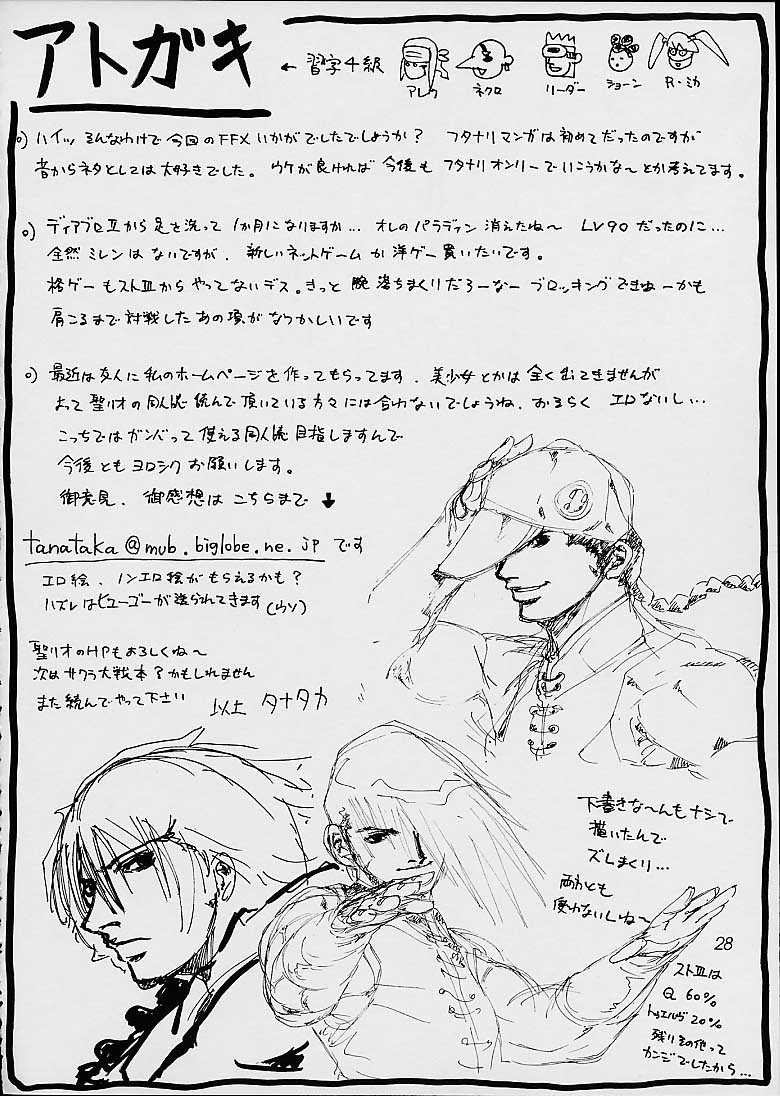 アトガキ
← 習字4級
アレク
ネクロ
リーダー
ショーン
R・ミカ
○) ハイッ そんなわけで今回のFFXいかがでしたでしょうか? フタナリマンガは初めてだったのですが
昔からネタとしては大好きでした。 ウケが良ければ 今後も フタナリオンリーでいこうかな～とか考えてます。
○) ディアブロⅡから足を洗って 1か月になりますか… オレのパラディン 消えたね～ LV90だったのに…
全然ミレンはないですが、新しいネットゲームか洋ゲー買いたいです。
格ゲーもストⅢからやってないデス。きっと 腕落ちまくりだろーなー ブロッキングできねーかも
肩こるまで対戦したあの頃がなつかしいです
○) 最近は友人に私のホームページを作ってもらってます、美少女とかは全く出てきませんが
よって聖リオの同人誌読んで頂いている方々には合わないでしょうね、おそらく エロないし…
こっちではガンバって使える同人誌目指しますんで
今後ともヨロシクお願いします。
御意見、御感想はこちらまで ↓
tanataka@mub.biglobe.ne.jp です
エロ絵、ノンエロ絵がもらえるかも?
ハズレはヒューゴーが送られてきます(ウソ)
聖リオのHPもよろしくね～
次はサクラ大戦本?かもしれません
また読んでやって下さい
以上 タナタカ
下書きな～んもナシで
描いたんで
ズレまくり…
両方とも
使わないしね～
28
ストⅢは
Q 60%
トゥエルヴ 20%
残りその他って
カンジでしたから…